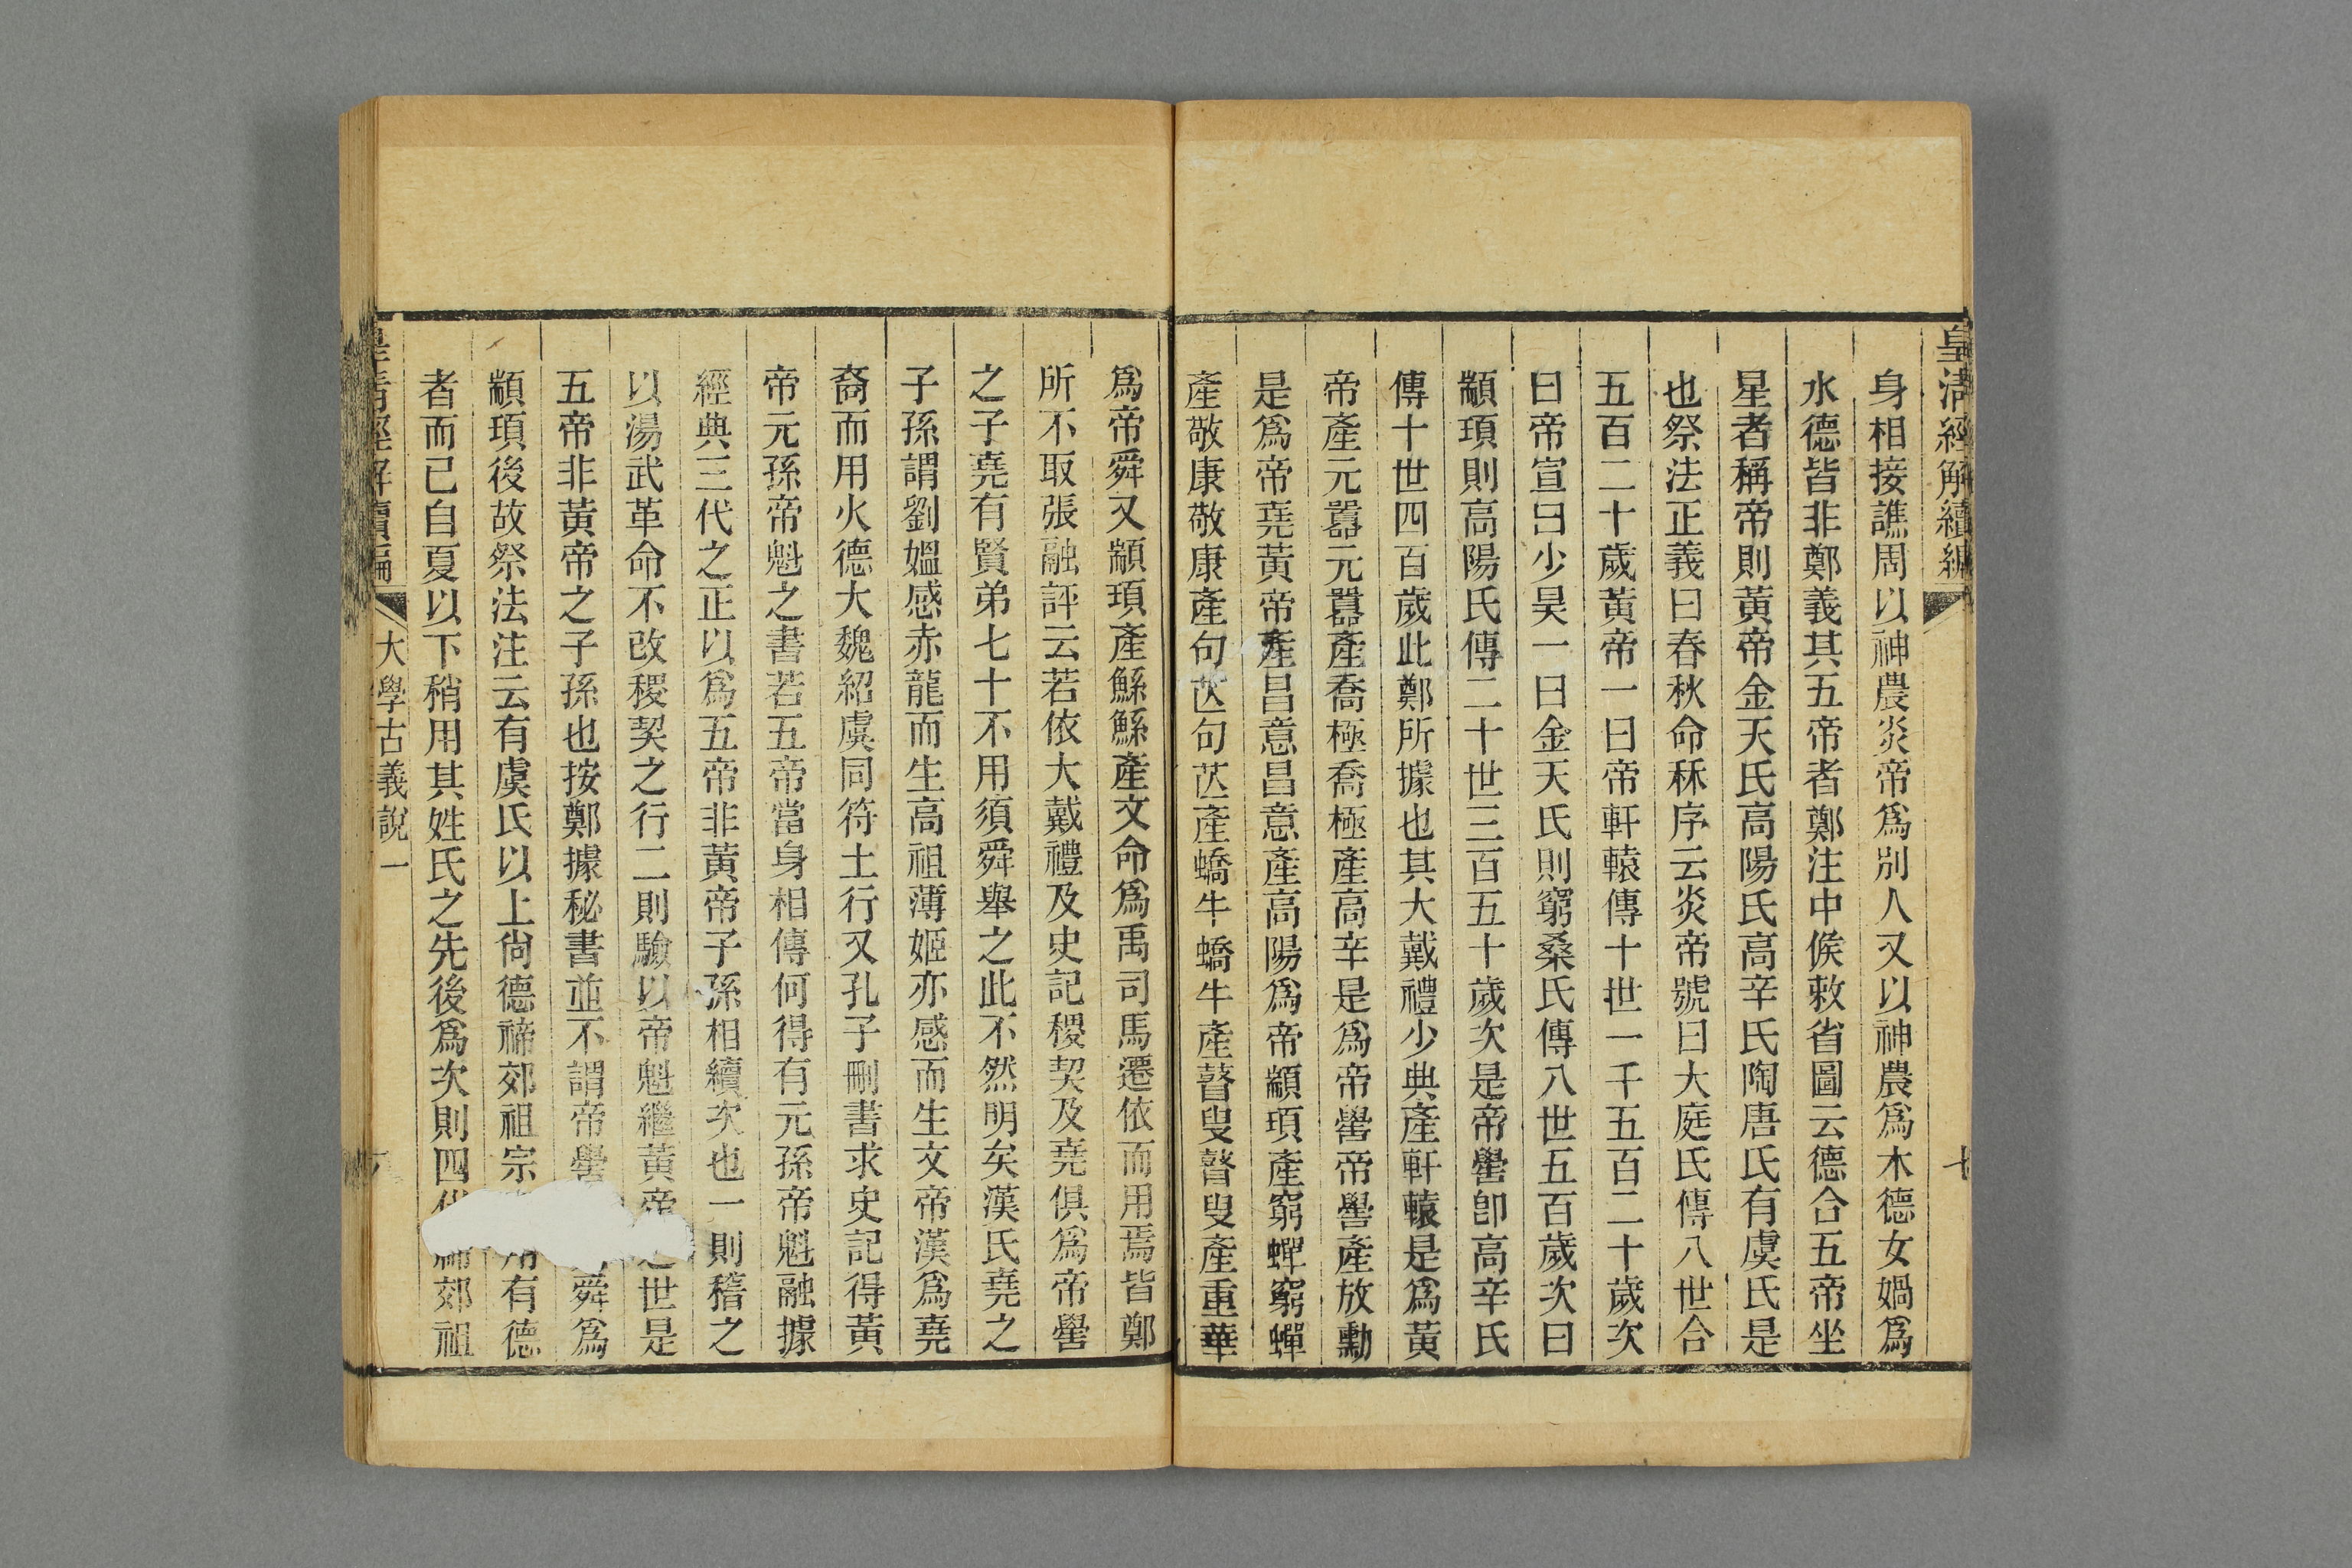 皇清經解續編
七
身相接譙周以神農炎帝爲別人又以神農爲木德女媧爲
水德皆非鄭義其五帝者鄭注中候敕省圖云德合五帝坐
星者稱帝則黃帝金天氏高陽氏高辛氏陶唐氏有虞氏是
也祭法正義曰春秋命秝序云炎帝號曰大庭氏傳八世合
五百二十歲黃帝一曰帝軒轅傳十世一千五百二十歲次
曰帝宣曰少昊一曰金天氏則窮桑氏傳八世五百歲次曰
顓頊則高陽氏傳二十世三百五十歲次是帝嚳卽高辛氏
傳十世四百歲此鄭所據也其大戴禮少典產軒轅是爲黃
帝產元囂元囂產喬極喬極產高辛是爲帝嚳帝嚳產放勳
是爲帝堯黃帝產昌意昌意產高陽爲帝顓頊產窮蟬窮蟬
產敬康敬康產句芒句芒產蟜牛蟜牛產瞽叟瞽叟產重華
爲帝舜又顓頊產鯀鯀產文命爲禹司馬遷依而用焉皆鄭
所不取張融評云若依大戴禮及史記稷契及堯俱爲帝嚳
之子堯有賢弟七十不用須舜舉之此不然明矣漢氏堯之
子孫謂劉媼感赤龍而生高祖薄姬亦感而生文帝漢爲堯
裔而用火德大魏紹虞同符土行又孔子刪書求史記得黃
帝元孫帝魁之書若五帝當身相傳何得有元孫帝魁融據
經典三代之正以爲五帝非黃帝子孫相續次也一則稽之
以湯武革命不改稷契之行二則驗以帝魁繼黃帝之世是
五帝非黃帝之子孫也按鄭據秘書並不謂帝嚳舜爲
顓頊後故祭法注云有虞氏以上尙德禘郊祖宗用有德
者而已自夏以下稍用其姓氏之先後爲次則四代禘郊祖
皇清經解續編
大學古義說一